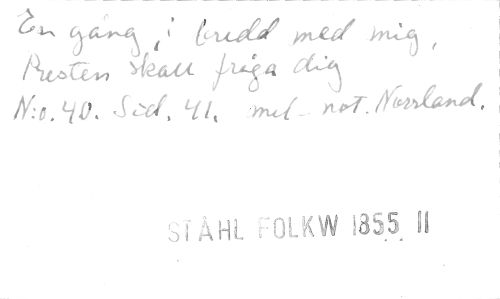 En gång, i bredd med mig,
Presten skall fråga dig
N:o. 40. Sid. 41. mel. not. Norrland.
STÅHL FOLKW 1855 II